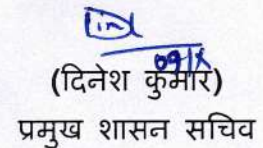 09/x
(दिनेश कुमार)
प्रमुख शासन सचिव